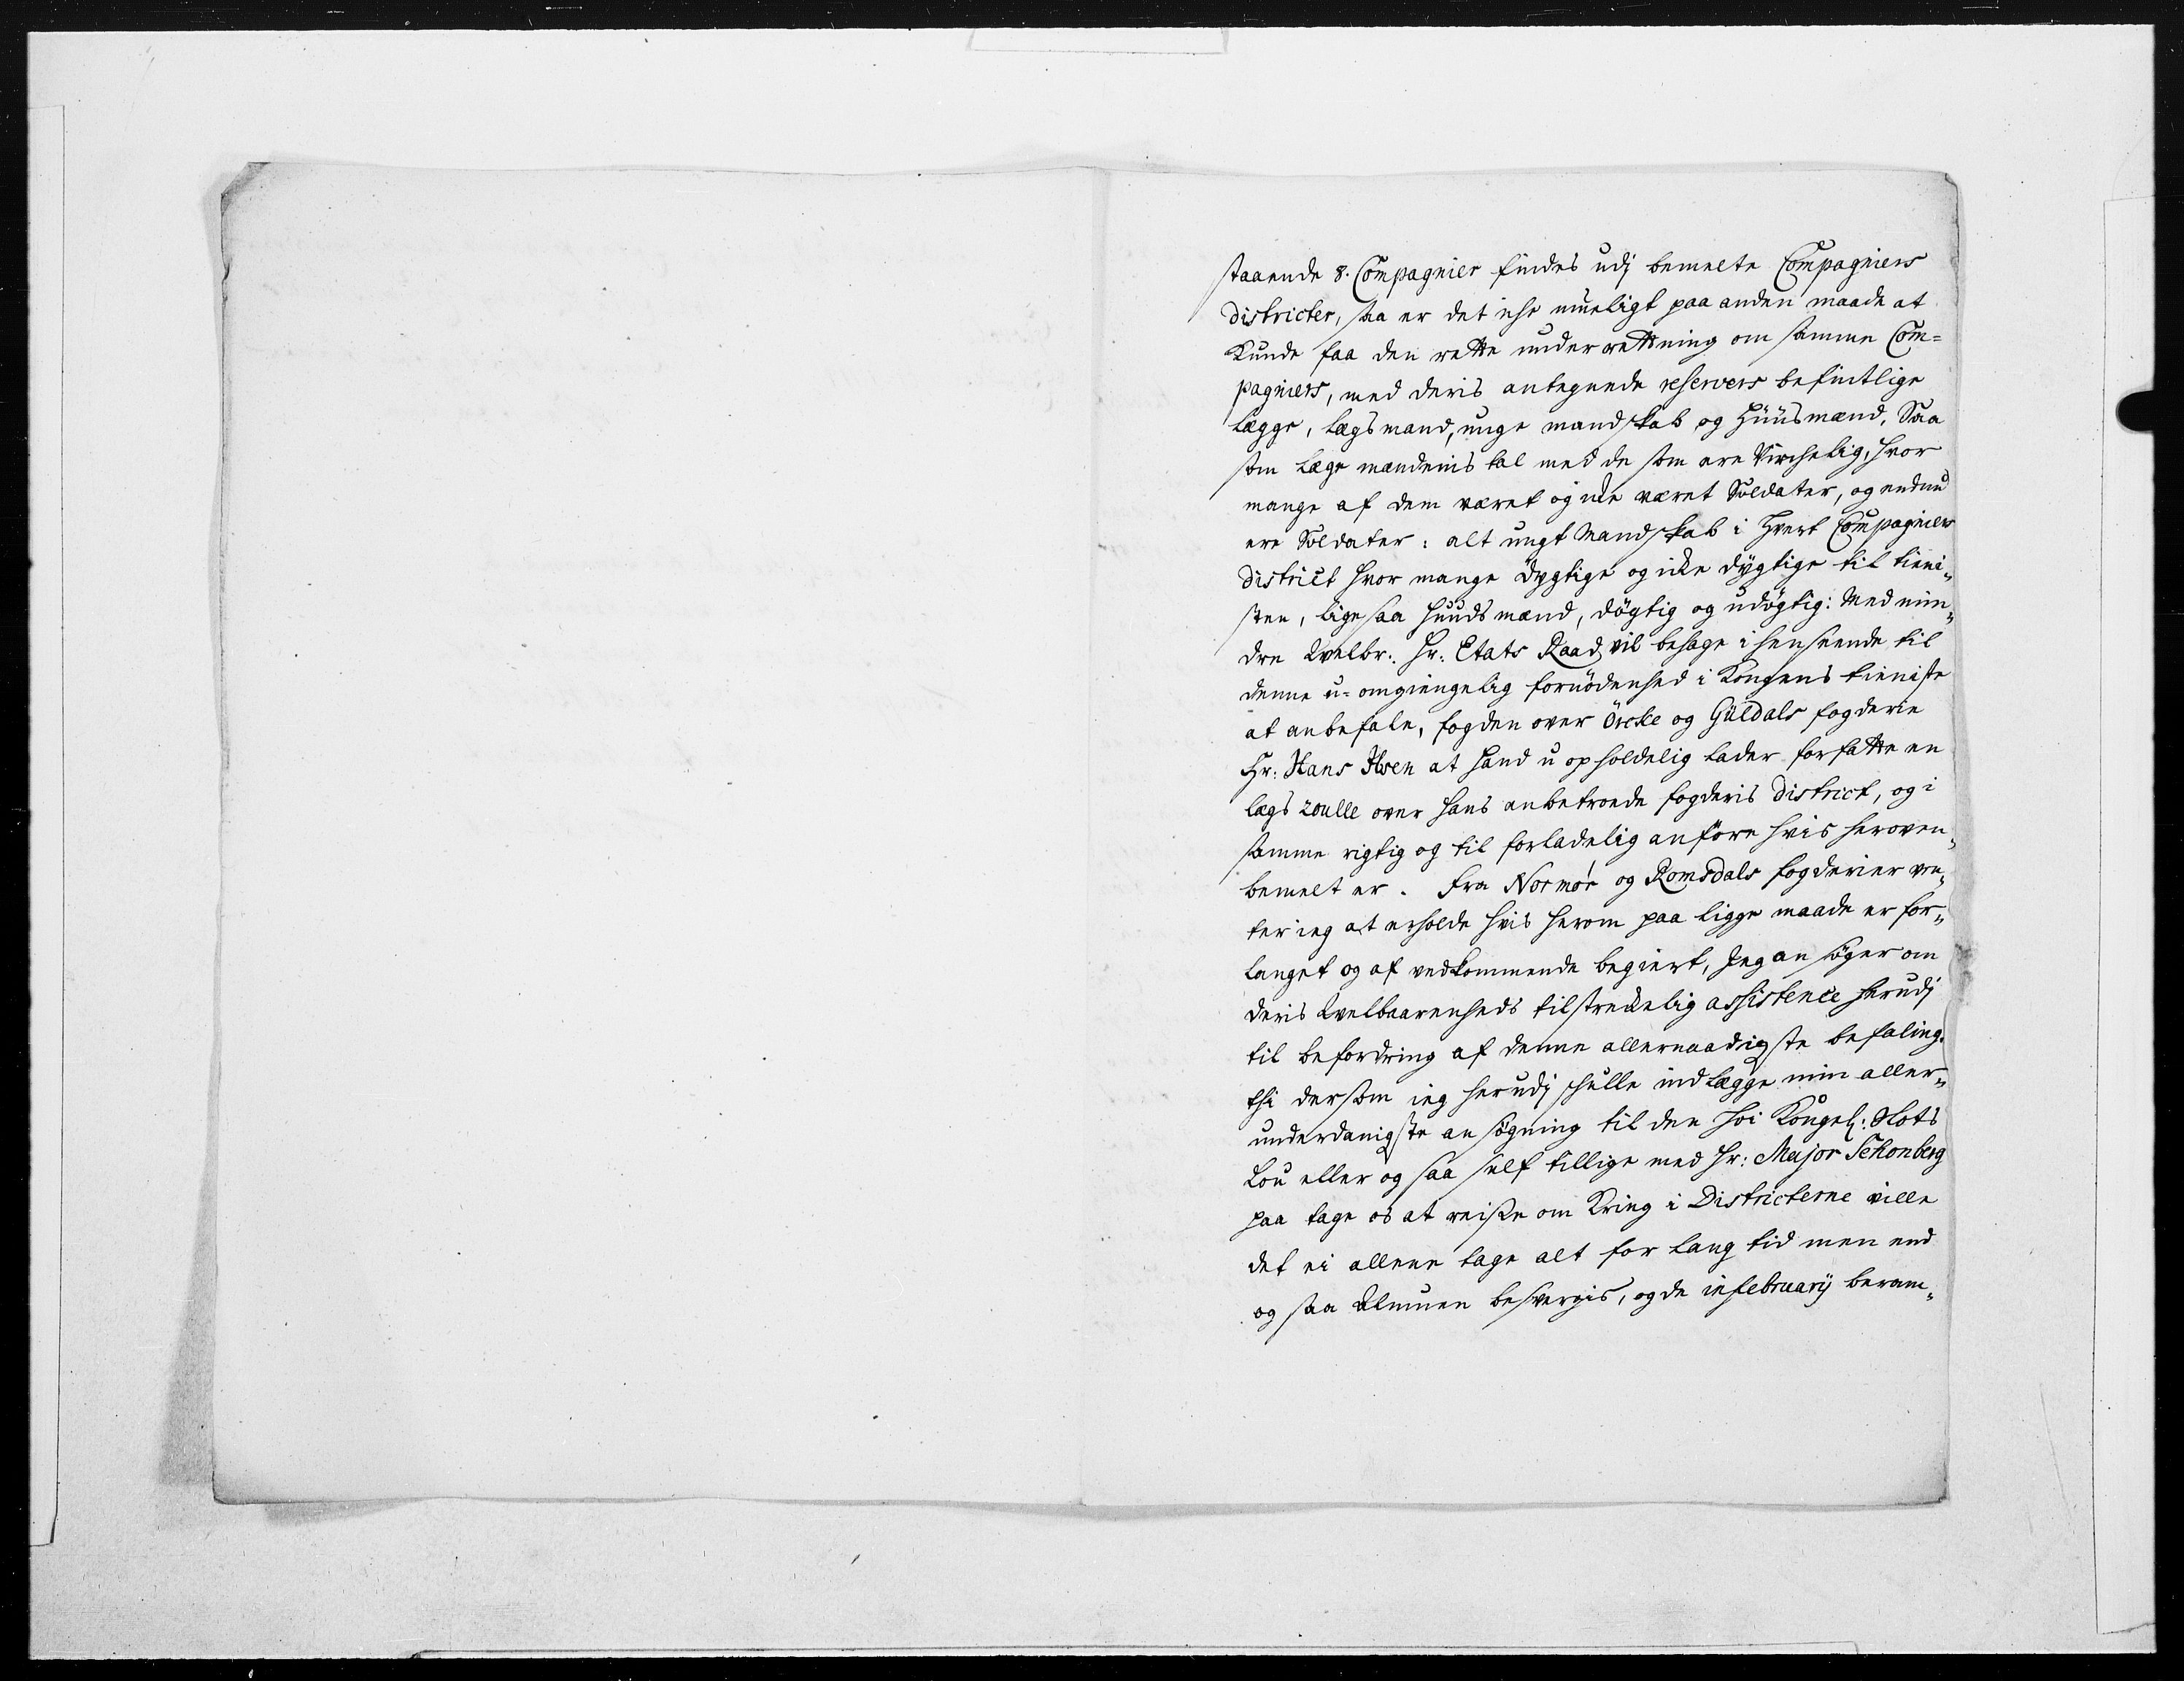 staaende 8. Compagnier findes udj bemelte Compagniers
districter, saa er det iche mueligt paa anden maade at
kunde faa den rette underrettning om samme Com=
pagniers, med deris anbegende reservers befintlige
lægge, lægsmand, unge mandskab og Huusmænd, Saa
som læge mændenis tal med de som ere Virchelig, hvor
mange af dem været og icke været Soldater, og endnu
ere Soldater: alt ungt Mandskab i Hvert Compagnies
district hvor mange dygtige og icke dygtige til tieni„
sten, ligesaa huudsmænd, dögtig og udögtig: Med min„
dre Velbr: Hr: Etats Raad vil behage i henseende til
denne u=omgiengelig fornödenhed i Kongens tieniste
at anbefale, fogden over Örcke og Güldals fogderie
Hr: Hans Iwen at hand u opholdelig lader forfatte en
lægs roulle over hans anbetroede fogderis district, og i
samme rigtig og til forladelig anföre hvis heroven„
bemelt er. fra Normör og Romsdals fogderier ven„
ter ieg at erholde hvis herom paa ligge maade er for„
langet og af vedkommende begiert, Jeg ansöger om
deris Velbaarenheds tilstreckelig assistence herudj
til befordring af denne allernaadigste befaling.
thi dersom ieg herudj skulle indlægge min aller„
underdanigste ansögning til den höi Kongel: Slots
Lov eller og saa self tillige med Hr: Major Schonberg
paa tage os at reise om Kring i Districterne ville
det ei allene tage alt for lang tid men end
og saa Almuen besvergis, og de in februarij beram„